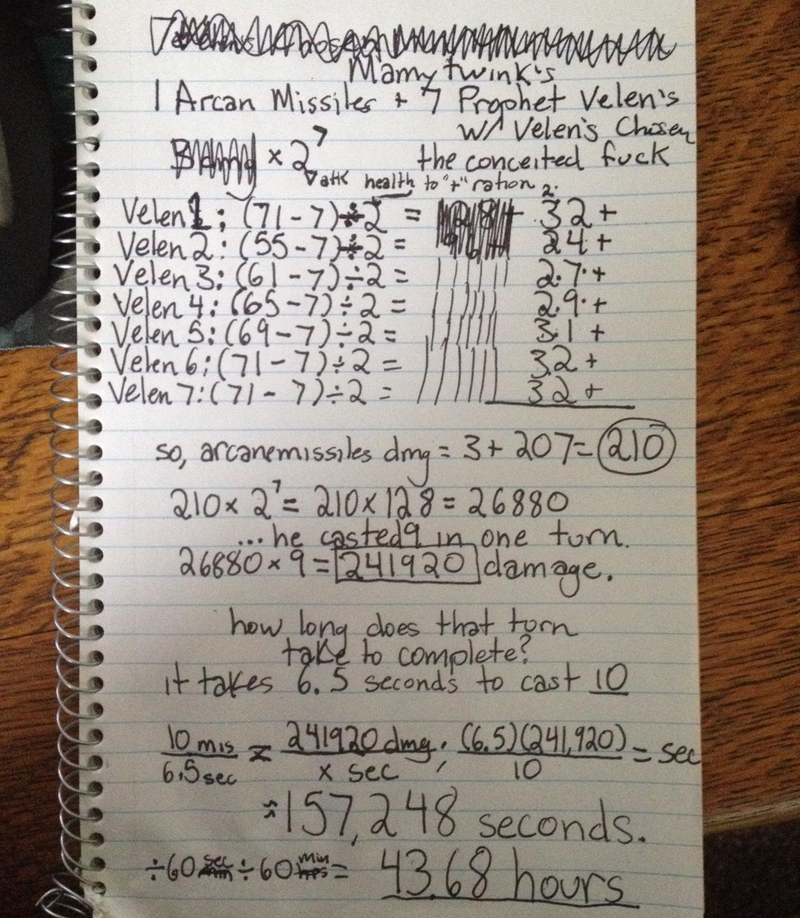 Mamytwink's
1 Arcan Missiles + 7 Prophet Velen's
w/ Velen's Chosen
× 2⁷ the conceited fuck
atk health to "+" ration
Velen 1: (71 - 7) ÷ 2 = 32 +
Velen 2: (55 - 7) ÷ 2 = 24 +
Velen 3: (61 - 7) ÷ 2 = 2.7. +
Velen 4: (65 - 7) ÷ 2 = 2.9. +
Velen 5: (69 - 7) ÷ 2 = 31 +
Velen 6: (71 - 7) ÷ 2 = 32 +
Velen 7: (71 - 7) ÷ 2 = 32 +
so, arcanemissiles dmg = 3 + 207 = 210
210 × 2⁷ = 210 × 128 = 26880
... he casted 9 in one turn.
26880 × 9 = 241920 damage.
how long does that turn
take to complete?
it takes 6.5 seconds to cast 10
10 mis / 6.5 sec = 241920 dmg / x sec ; (6.5)(241,920) / 10 = sec
≈ 157,248 seconds.
÷ 60 sec ÷ 60 min = 43.68 hours